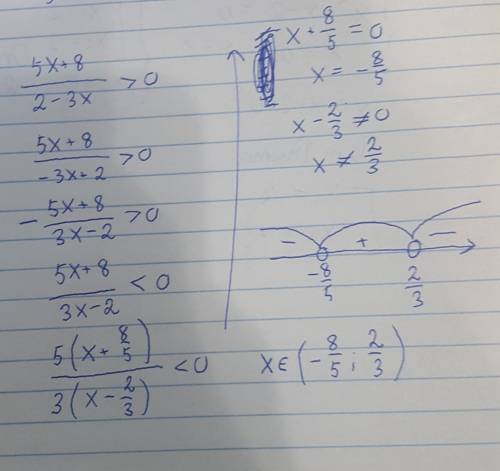 (5x+8)/(2-3x) > 0
(5x+8)/(-3x+2) > 0
-(5x+8)/(3x-2) > 0
(5x+8)/(3x-2) < 0
5(x+8/5)/3(x-2/3) < 0
x+8/5=0
x=-8/5
x-2/3≠0
x≠2/3
- + -
-8/5 2/3
x∈(-8/5;2/3)